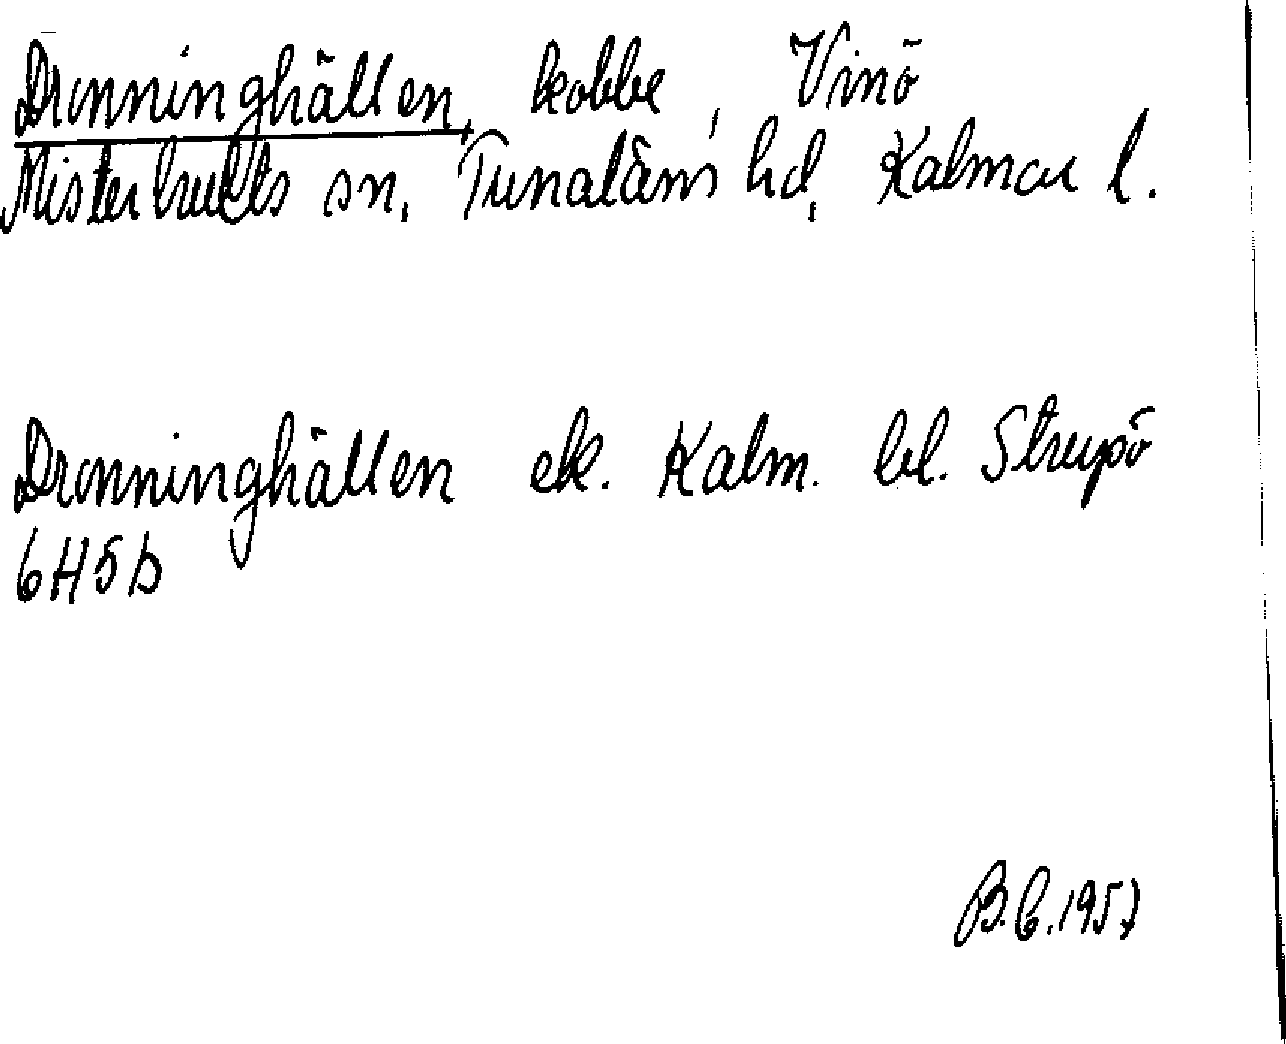 Dronninghällen, kobbe, Vinö
Misterhults sn, Tunaläns hd, Kalmar l.
Dronninghällen ek. Kalm. bl. Strupö
6H5b
B.C. 1957